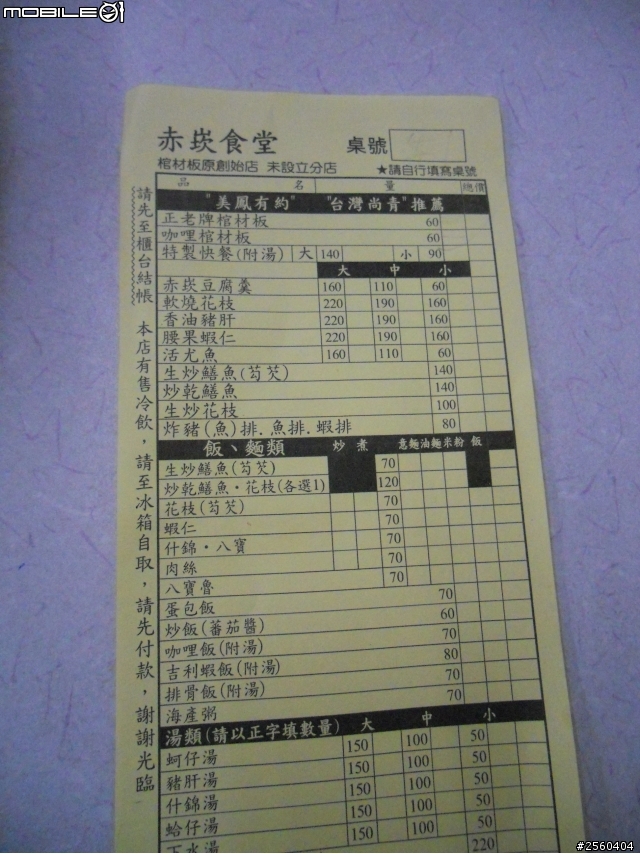 MOBILE01
赤崁食堂 桌號
棺材板原創始店 未設立分店 ★請自行填寫桌號
品名 量 總價
"美鳳有約" "台灣尚青"推薦
正老牌棺材板 60
咖哩棺材板 60
特製快餐(附湯) 大 140 小 90
大 中 小
赤崁豆腐羹 160 110 60
軟燒花枝 220 190 160
香油豬肝 220 190 160
腰果蝦仁 220 190 160
活尤魚 160 110 60
生炒鱔魚(芶芡) 140
炒乾鱔魚 140
生炒花枝 100
炸豬(魚)排.魚排.蝦排 80
飯、麵類 炒 煮 意麵 油麵 米粉 飯
生炒鱔魚(芶芡) 70
炒乾鱔魚·花枝(各選1) 120
花枝(芶芡) 70
蝦仁 70
什錦·八寶 70
肉絲 70
八寶魯 70
蛋包飯 70
炒飯(蕃茄醬) 60
咖哩飯(附湯) 70
吉利蝦飯(附湯) 80
排骨飯(附湯) 70
海產粥 70
湯類(請以正字填數量) 大 中 小
蚵仔湯 150 100 50
豬肝湯 150 100 50
什錦湯 150 100 50
蛤仔湯 150 100 50
下水湯 150 100 50
220
請先至櫃台結帳 本店有售冷飲，請至冰箱自取，請先付款，謝謝光臨
#2560404